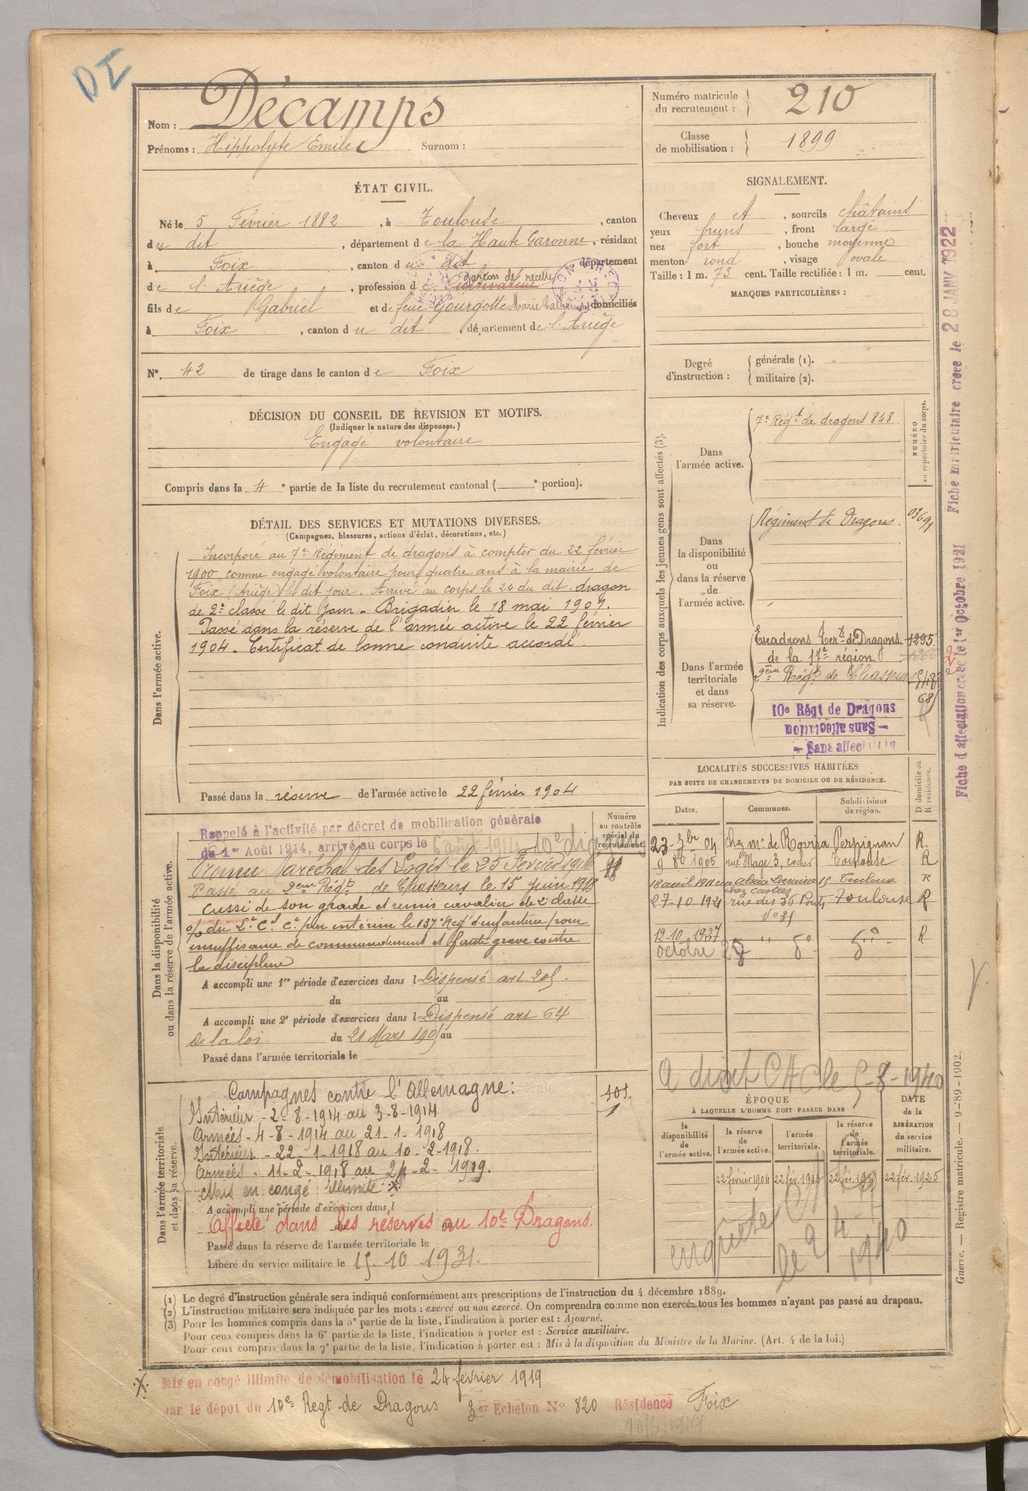 DI
Nom : Décamps
Prénoms : Hippolyte Emile Surnom :
Numéro matricule du recrutement : 210
Classe de mobilisation : 1899
ÉTAT CIVIL.
Né le 5 Février 1882, à Toulouse, canton
du dit, département de la Haute Garonne, résidant
à Foix, canton du dit département
garçon de recette
de l'Ariège, profession de
fils de Gabriel et de feue Gourgotte Marie domiciliés
à Foix, canton du dit département de l'Ariège
N° 42 de tirage dans le canton de Foix
DÉCISION DU CONSEIL DE REVISION ET MOTIFS.
(Indiquer la nature des dispenses.)
Engagé volontaire
Compris dans la 4e partie de la liste du recrutement cantonal ( e portion).
DÉTAIL DES SERVICES ET MUTATIONS DIVERSES.
(Campagnes, blessures, actions d'éclat, décorations, etc.)
Dans l'armée active.
Incorporé au 7e Régiment de dragons à compter du 22 février
1900 comme engagé volontaire pour quatre ans à la mairie de
Foix (Ariège) dit jour. Arrivé au corps le 24 du dit. dragon
de 2e classe le dit jour - Brigadier le 18 mai 1901.
Passé dans la réserve de l'armée active le 22 février
1904. Certificat de bonne conduite accordé.
Passé dans la réserve de l'armée active le 22 février 1904
Dans la disponibilité ou dans la réserve de l'armée active.
Numéro au contrôle spécial du recrutement.
Rappelé à l'activité par décret de mobilisation générale
du 1er Août 1914, arrivé au corps le août 1914 10e
Maréchal des Logis le 25 Février
Passé au 2eme Régt de Chasseurs le 15 juin
Cassé de son grade et remis cavalier de 2e classe
o/ du Lt Cl Ct par intérim le 137e Régt d'infanterie pour
insuffisance de commandement et faute grave contre
la discipline
A accompli une 1re période d'exercices dans l Dispensé art
du au
A accompli une 2e période d'exercices dans l Dispensé art 64
de la loi du 21 Mars 1905 au
Passé dans l'armée territoriale le
Dans l'armée territoriale et dans sa réserve.
Campagnes contre l'Allemagne :
Intérieur - 2-8-1914 au 3-8-1914
Armées - 4-8-1914 au 21-1-1918
Intérieur - 22-1-1918 au 10-2-1918.
Armées - 11-2-1918 au 24-2-1919.
Mis en congé illimité X
A accompli une période d'exercices dans l
Affecté dans les réserves au 10e Dragons.
Passé dans la réserve de l'armée territoriale le
Libéré du service militaire le 15-10 1931.
SIGNALEMENT.
Cheveux et, sourcils châtains
yeux bruns, front large
nez fort, bouche moyenne
menton rond, visage ovale
Taille : 1 m. 72 cent. Taille rectifiée : 1 m. cent.
MARQUES PARTICULIÈRES :
Degré d'instruction : générale (1).
militaire (2).
Indication des corps auxquels les jeunes gens sont affectés (3).
NUMÉRO au répertoire du corps.
Dans l'armée active.
7e Régt de dragons 848
Dans la disponibilité ou dans la réserve de l'armée active.
Régiment de Dragons.
Dans l'armée territoriale et dans sa réserve.
Escadrons Terx de Dragons 1295
de la 17e région
2eme Régt de Chasseurs
10e Régt de Dragons
— Sans affectation
— Sans affect
LOCALITÉS SUCCESSIVES HABITÉES
PAR SUITE DE CHANGEMENTS DE DOMICILE OU DE RÉSIDENCE.
Dates. Communes. Subdivisions de région. D domicile ou R résidence.
23 - 7bre 04 chez Mr de Rovira Perpignan R.
1905 rue Mage 3, Toulouse R
18 avril 1911 Alsace Lorraine 15 Toulouse R
27-10-1921 rue des 36 Ponts Toulouse R
n° 31
12-10-1927 R
octobre
A droit CAC le 5-8-1940
ÉPOQUE
À LAQUELLE L'HOMME DOIT PASSER DANS
la disponibilité de l'armée active. la réserve de l'armée active. l'armée territoriale. la réserve de l'armée territoriale. DATE de la LIBÉRATION du service militaire.
22 février 1904 22 fév. 22 fév. 22 fév. 1925
enquête
le 24-
1940
(1) Le degré d'instruction générale sera indiqué conformément aux prescriptions de l'instruction du 4 décembre 1889.
(2) L'instruction militaire sera indiquée par les mots : exercé ou non exercé. On comprendra comme non exercé tous les hommes n'ayant pas passé au drapeau.
(3) Pour les hommes compris dans la 5e partie de la liste, l'indication à porter est : Ajourné.
Pour ceux compris dans la 6e partie de la liste, l'indication à porter est : Service auxiliaire.
Pour ceux compris dans la 7e partie de la liste, l'indication à porter est : Mis à la disposition du Ministre de la Marine. (Art. 4 de la loi.)
X Mis en congé illimité de démobilisation le 24 février 1919
par le dépot du 10e Régt de Dragons 3er Echelon N° 820 Résidence Foix
Fiche d'affectation créée le 1er octobre 1921 Fiche matriculaire créée le 28 JANV 1922
Guerre. — Registre matricule. — 9-89-1902.